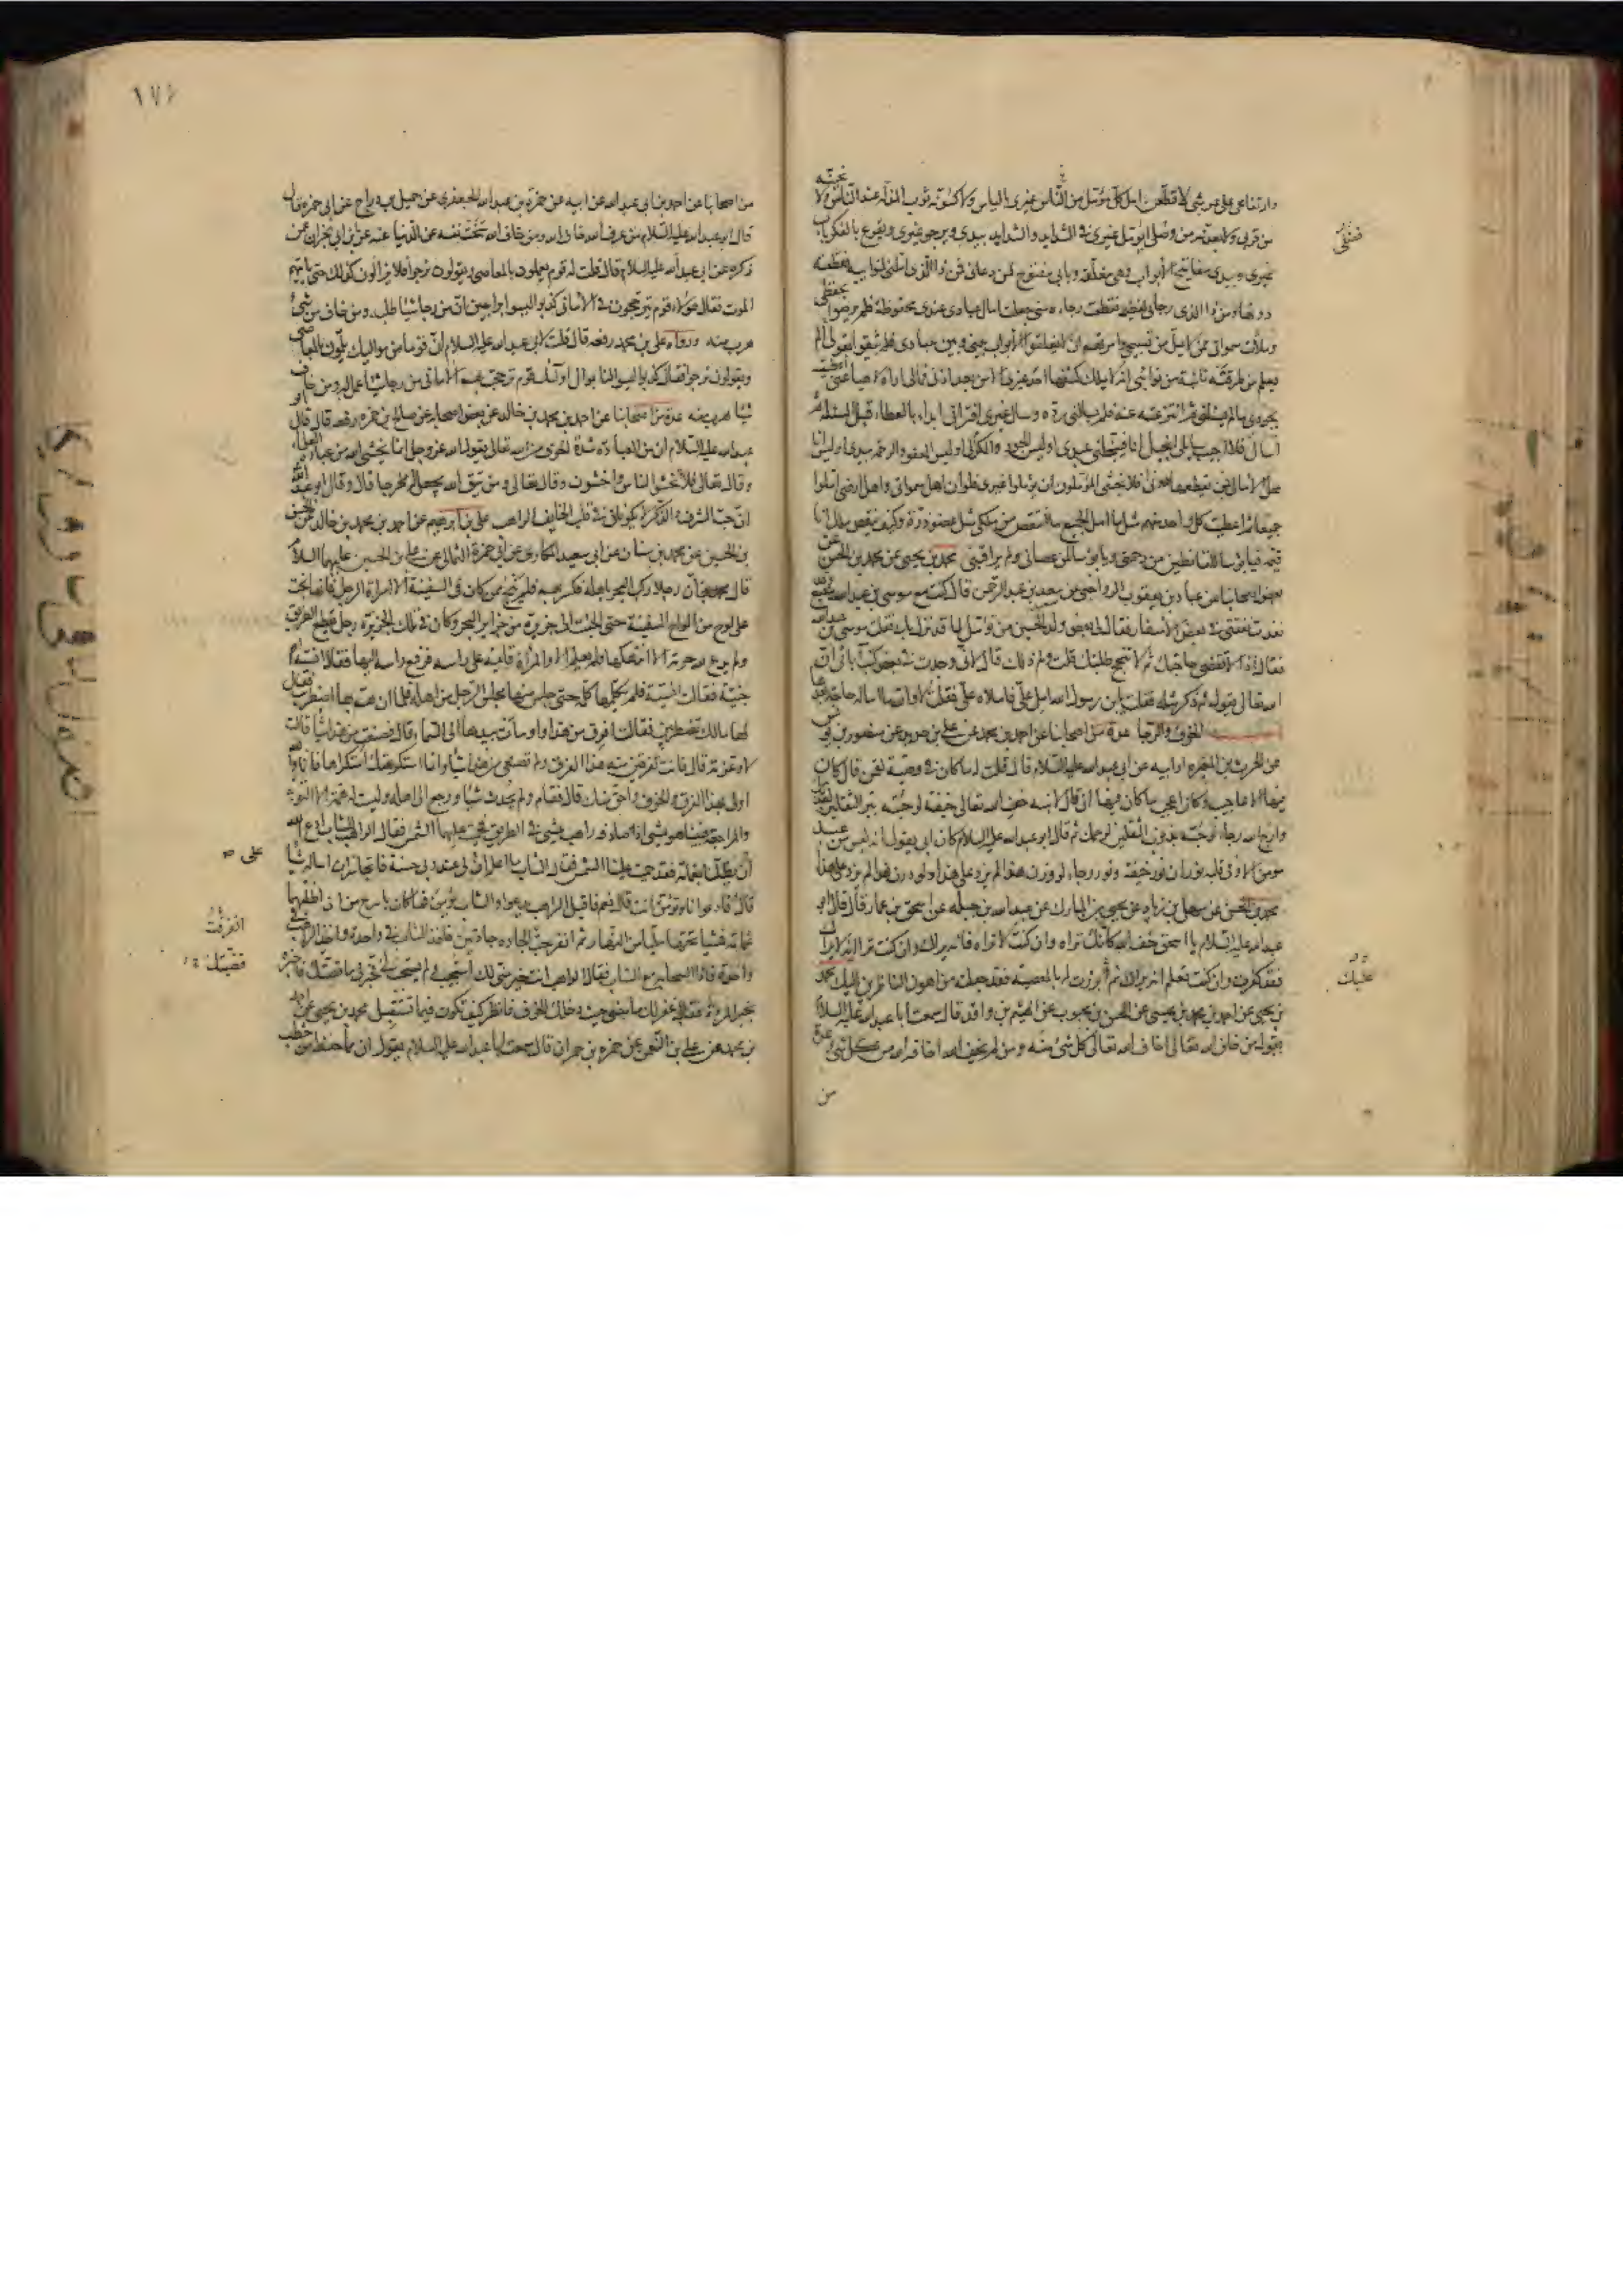 وارتفاعي على عرشي لاقطعن امل كل مؤمل من الناس غيري بالياس ولاكسونه ثوب المذلة عند الناس ولانحينه
من قربي ولابعدنه من وصلي ايؤمل غيري في الشدايد والشدايد بيدي ويرجو غيري ويقرع بالفكر باب
غيري وبيدي مفاتيح الابواب وهي مغلقة وبابي مفتوح لمن دعاني فمن ذا الذي املني لنوائبه فقطعته
دونها ومن ذا الذي رجاني لعظيمة فقطعت رجاءه مني جعلت امال عبادي عندي محفوظة فلم يرضوا بحفظي
وملأت سمواتي ممن لا يمل من تسبيحي وامرتهم ان لا يغلقوا الابواب بيني وبين عبادي فلم يثقوا بقولي الم
يعلم من طرقته نائبة من نوائبي انه لا يملك كشفها احد غيري الا من بعد اذني فمالي اراه لاهيا عني اعطيته
بجودي ما لم يسألني ثم انتزعته عنه فلم يسألني رده وسأل غيري افيراني ابدأ بالعطاء قبل المسئلة ثم
اسأل فلا اجيب سائلي ابخيل انا فيبخلني عبدي اوليس الجود والكرم لي اوليس العفو والرحمة بيدي اوليس انا
محل الامال فمن يقطعها دوني افلا يخشى المؤملون ان يؤملوا غيري فلو ان اهل سمواتي واهل ارضي املوا
جميعا ثم اعطيت كل واحد منهم مثل ما امل الجميع ما انتقص من ملكي مثل عضو ذرة وكيف ينقص ملك انا
قيمه فيا بؤسا للقانطين من رحمتي ويا بؤسا لمن عصاني ولم يراقبني محمد بن يحيى عن محمد بن الحسن عن
بعض اصحابنا عن عباد بن يعقوب الرواجني عن سعيد بن عبد الرحمن قال كنت مع موسى بن عبد الله بينبع
نفدت نفقتي في بعض الاسفار فقال لي بعض ولد الحسين من تؤمل لما قد نزل بك فقلت موسى بن عبد الله
فقال اذا لا تقضى حاجتك ثم لا تنجح طلبتك قلت ولم ذلك قال لاني وجدت في بعض كتب آبائي ان
الله تعالى يقول ثم ذكر مثله فقلت يا بن رسول الله امل علي فاملاه علي فقلت لا والله ما اساله حاجة بعدها
باب الخوف والرجاء عدة من اصحابنا عن احمد بن محمد عن علي بن حديد عن منصور بن يونس
عن الحرث بن المغيرة او ابيه عن ابي عبد الله عليه السلام قال قلت له ما كان في وصية لقمن قال كان
فيها الاعاجيب وكان اعجب ما كان فيها ان قال لابنه خف الله تعالى خيفة لو جئته ببر الثقلين لعذبك
وارج الله رجاء لو جئته بذنوب الثقلين لرحمك ثم قال ابو عبد الله عليه السلام كان ابي يقول انه ليس من عبد
مؤمن الا وفي قلبه نوران نور خيفة ونور رجاء لو وزن هذا لم يزد على هذا ولو وزن هذا لم يزد على هذا
محمد بن الحسن عن سهل بن زياد عن يحيى بن المبارك عن عبد الله بن جبلة عن اسحق بن عمار قال قال ابو
عبد الله عليه السلام يا اسحق خف الله كانك تراه وان كنت لا تراه فانه يراك وان كنت ترى انه لا يراك
فقد كفرت وان كنت تعلم انه يراك ثم برزت له بالمعصية فقد جعلته من اهون الناظرين اليك محمد
بن يحيى عن احمد بن محمد بن عيسى عن الحسن بن محبوب عن الهيثم بن واقد قال سمعت ابا عبد الله عليه السلام
يقول من خاف الله تعالى اخاف الله تعالى كل شيء منه ومن لم يخف الله اخافه الله من كل شيء عدة
من
فضلي
عليك
١٧٤
من اصحابنا عن احمد بن ابي عبد الله عن ابيه عن حمزة بن عبد الله الجعفري عن جميل بن دراج عن ابي حمزة قال
قال ابو عبد الله عليه السلام من عرف الله خاف الله ومن خاف الله سخت نفسه عن الدنيا عنه عن ابن ابي نجران عمن
ذكره عن ابي عبد الله عليه السلام قال قلت له قوم يعملون بالمعاصي ويقولون نرجو فلا يزالون كذلك حتى ياتيهم
الموت فقال هؤلاء قوم يترجحون في الاماني كذبوا ليسوا براجين ان من رجا شيئا طلبه ومن خاف من شيء
هرب منه ورواه علي بن محمد رفعه قال قلت لابي عبد الله عليه السلام ان قوما من مواليك يلمون بالمعاصي
ويقولون نرجو فقال كذبوا ليسوا لنا بموال اولئك قوم ترجحت بهم الاماني من رجا شيئا عمل له ومن خاف
شيئا هرب منه عدة من اصحابنا عن احمد بن محمد بن خالد عن بعض اصحابه عن صالح بن حمزة رفعه قال قال ابو
عبد الله عليه السلام ان من العبادة شدة الخوف من الله تعالى يقول الله عز وجل انما يخشى الله من عباده العلماء
وقال تعالى فلا تخشوا الناس واخشون وقال تعالى ومن يتق الله يجعل له مخرجا قال وقال ابو عبد الله
ان حب الشرف والذكر لا يكونان في قلب الخائف الراهب علي بن ابراهيم عن احمد بن محمد بن خالد عن الحسن
بن الحسين عن محمد بن سنان عن ابي سعيد المكاري عن ابي حمزة الثمالي عن علي بن الحسين عليهما السلام
قال ان رجلا ركب البحر باهله فكسر بهم فلم ينج ممن كان في السفينة الا امراة الرجل فانها نجت
على لوح من الواح السفينة حتى الجئت الى جزيرة من جزاير البحر وكان في تلك الجزيرة رجل يقطع الطريق
ولم يدع لله حرمة الا انتهكها فلم يعلم الا والمراة قائمة على راسه فرفع راسه اليها فقال انسية ام
جنية فقالت انسية فلم يكلمها كلمة حتى جلس منها مجلس الرجل من اهله فلما ان هم بها اضطربت فقال
لها مالك تضطربين فقالت افرق من هذا واومأت بيدها الى السماء قال فصنعت من هذا شيئا قالت
لا وعزته قال فانت تفرقين منه هذا الفرق ولم تصنعي من هذا شيئا وانما استكرهتك استكراها فانا والله
اولى بهذا الفرق والخوف واحق منك قال فقام ولم يحدث شيئا ورجع الى اهله وليست له همة الا التوبة
والمراجعة فبينا هو يمشي اذ صادفه راهب يمشي في الطريق فحميت عليهما الشمس فقال الراهب للشاب ادع الله
ان يظلنا بغمامة فقد حميت علينا الشمس فقال الشاب ما اعلم ان لي عند ربي حسنة فاتجاسر ان اساله شيئا
قال فادعو انا وتؤمن انت قال نعم فاقبل الراهب يدعو والشاب يؤمن فما كان باسرع من ان اظلتهما
غمامة فمشيا تحتها مليا من النهار ثم انفرجت الجادة جادتين فاخذ الشاب في واحدة واخذ الراهب في
واحدة فاذا السحاب مع الشاب فقال الراهب انت خير مني لك استجيب ولم يستجب لي فخبرني ما قصتك فاخبره
بخبر المراة فقال غفر لك ما مضى حيث دخلك الخوف فانظر كيف تكون فيما تستقبل محمد بن يحيى عن احمد
بن محمد عن علي بن النعمن عن حمزة بن حمران قال سمعت ابا عبد الله عليه السلام يقول ان مما حفظ من خطب
على
انفرقت
قصتك